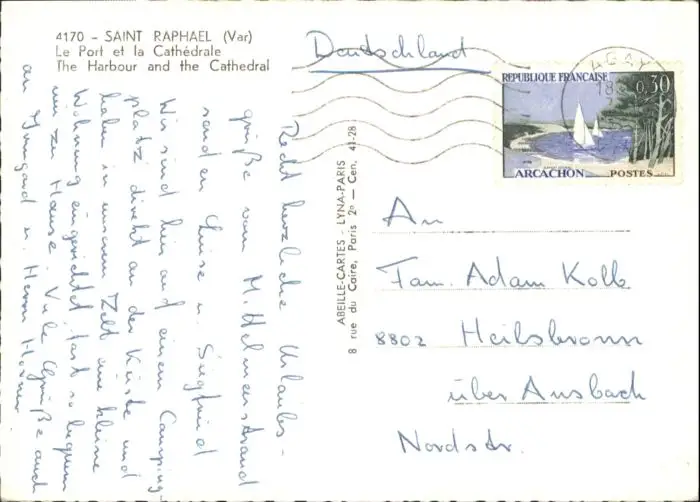 4170 - SAINT RAPHAEL (Var)
Le Port et la Cathédrale
The Harbour and the Cathedral
Deutschland
REPUBLIQUE FRANÇAISE
0,30
ARCACHON
POSTES
ABEILLE-CARTES - LYNA-PARIS
8 rue du Caire, Paris 2e - Cen. 41-28
Recht herzliche Urlaubs-
grüße vom M.
senden Luise u. Siegfried
Wir sind hier auf einem Camping-
platz direkt an der Küste und
haben in unserem Zelt eine kleine
Wohnung eingerichtet, fast so bequem
wie zu Hause. Viele Grüße auch
an Irmgard u. Herrn
An
Fam. Adam Kolb
8802 Heilsbronn
über Ansbach
Nordstr.